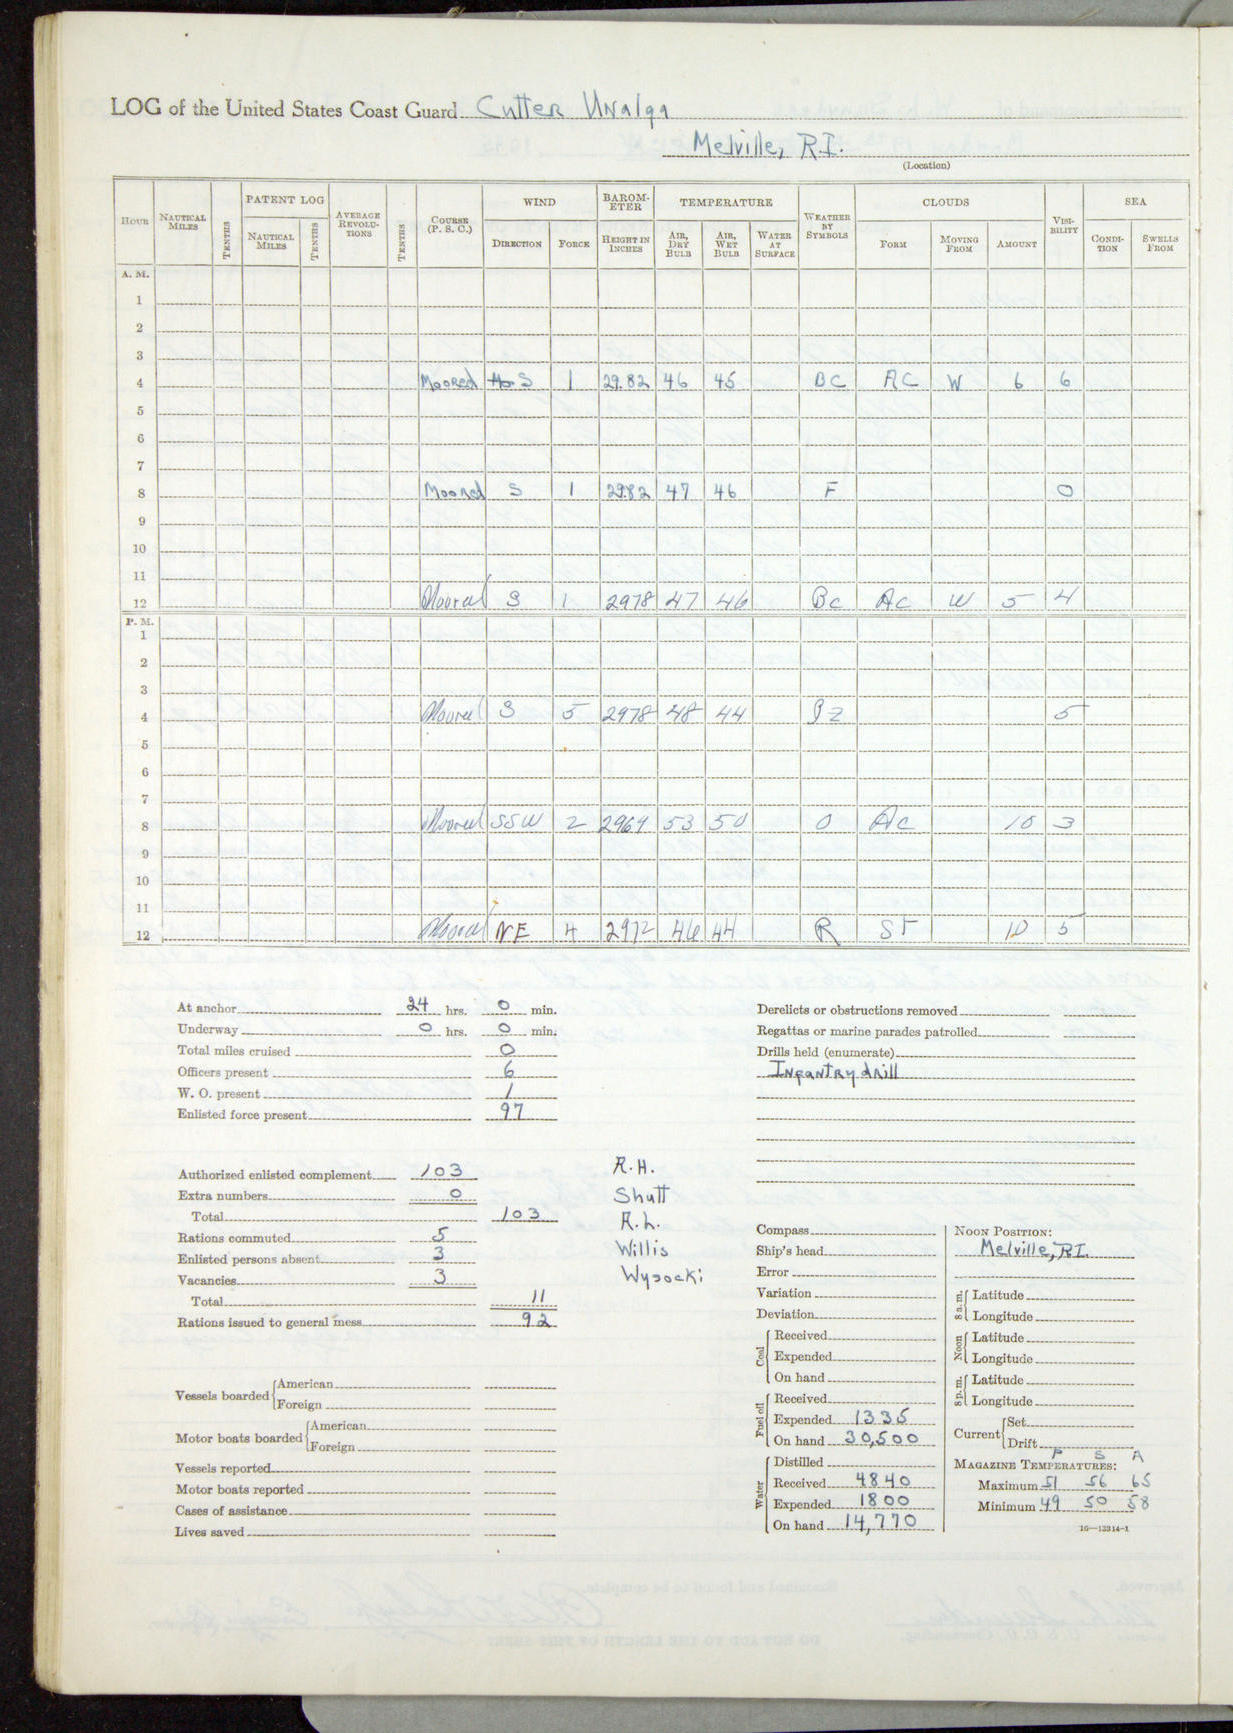 LOG of the United States Coast Guard Cutter Unalga
Melville, R.I.
(Location)
HOUR NAUTICAL MILES TENTHS PATENT LOG NAUTICAL MILES TENTHS AVERAGE REVOLUTIONS TENTHS COURSE (P. S. C.) WIND DIRECTION FORCE BAROMETER HEIGHT IN INCHES TEMPERATURE AIR, DRY BULB AIR, WET BULB WATER AT SURFACE WEATHER BY SYMBOLS CLOUDS FORM MOVING FROM AMOUNT VISIBILITY SEA CONDITION SWELLS FROM
A. M.
1
2
3
4 Moored S 1 29.82 46 45 BC AC W 6 6
5
6
7
8 Moored S 1 29.82 47 46 F 0
9
10
11
12 Moored S 1 2978 47 46 Bc Ac W 5 4
P. M.
1
2
3
4 Moored S 5 2978 48 44 5
5
6
7
8 Moored SSW 2 2969 53 50 O Ac 10 3
9
10
11
12 Moored NE 4 2972 46 44 R ST 10 5
At anchor 24 hrs. 0 min.
Underway 0 hrs. 0 min.
Total miles cruised 0
Officers present 6
W. O. present 1
Enlisted force present 97
Authorized enlisted complement 103
Extra numbers 0
Total 103
Rations commuted 5
Enlisted persons absent 3
Vacancies 3
Total 11
Rations issued to general mess 92
R. H.
Shutt
R. L.
Willis
Wysocki
Vessels boarded American
Foreign
Motor boats boarded American
Foreign
Vessels reported
Motor boats reported
Cases of assistance
Lives saved
Derelicts or obstructions removed
Regattas or marine parades patrolled
Drills held (enumerate)
Infantry drill
Compass
Ship's head
Error
Variation
Deviation
Coal Received
Expended
On hand
Fuel oil Received
Expended 1335
On hand 30,500
Water Distilled
Received 4840
Expended 1800
On hand 14,770
NOON POSITION:
Melville, R.I.
8 a. m. Latitude
Longitude
Noon Latitude
Longitude
8 p. m. Latitude
Longitude
Current Set
Drift
P S A
MAGAZINE TEMPERATURES:
Maximum 51 56 65
Minimum 49 50 58
16—13314-1